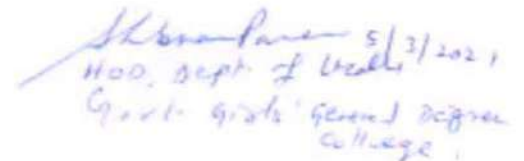 5/3/2021
HOD, Dept of
Govt Girls' General Degree
College.